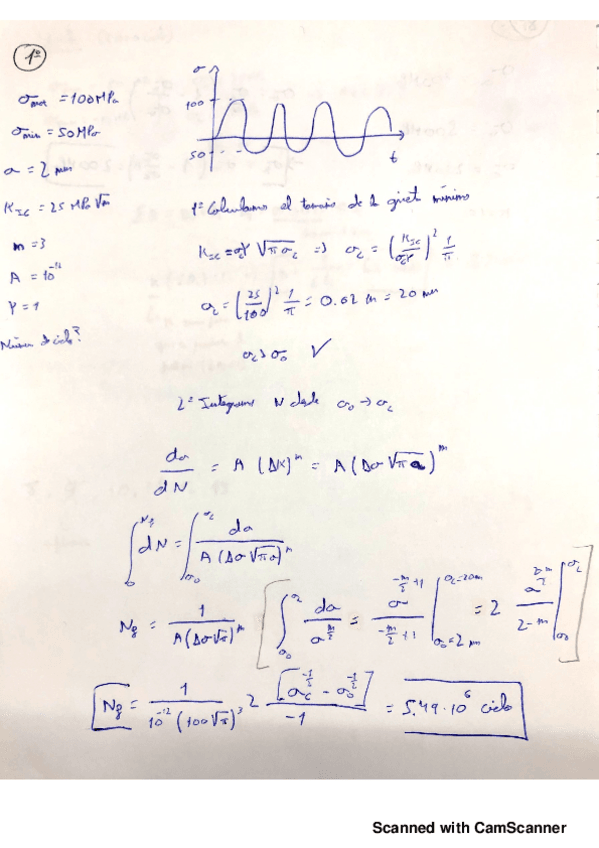 1º
σmax = 100 MPa
σmin = 50 MPa
a = 2 mm
K_IC = 25 MPa √m
m = 3
A = 10^-12
Y = 1
Número de ciclos?
σ
100
50
t
1º Calculamos el tamaño de la grieta mínimo
K_IC = σY √(π a_c) => a_c = (K_IC / σY)^2 1/π
a_c = (25/100)^2 1/π = 0.02 m = 20 mm
a_c > a_0 ✓
2º Integramos N desde a_0 → a_c
da/dN = A (ΔK)^m = A (Δσ √(π a))^m
∫_0^Nf dN = ∫_a0^ac da / A (Δσ √(π a))^m
Nf = 1 / A(Δσ√π)^m [ ∫_a0^ac da / a^(m/2) = a^(-m/2+1) / (-m/2+1) |_a0=2mm^ac=20mm = 2 a^((2-m)/2) / (2-m) |_a0^ac ]
Nf = 1 / 10^-12 (100√π)^3 2 [a_c^(-1/2) - a_0^(-1/2)] / -1 = 5.49·10^6 ciclos
Scanned with CamScanner